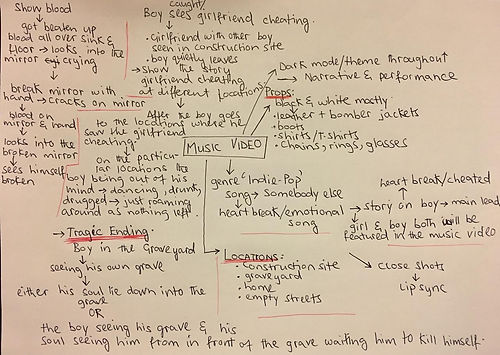 Show blood
got beaten up
blood all over sink &
floor → looks into the
mirror crying
break mirror with
hand → cracks on mirror
blood on
mirror & hand
looks into the
broken mirror
sees himself
broken
caught/
Boy sees girlfriend cheating.
• Girlfriend with other boy
seen in construction site
• boy quietly leaves
→ Show the story
girlfriend cheating
at different locations
After the boy goes
to the locations where he
saw the girlfriend
cheating
On the particu-
lar locations the
boy being out of his
mind → dancing, drunk,
drugged → just roaming
around as nothing left.
→ Tragic Ending:
Boy in the Graveyard
seeing his own grave
either his soul lie down into the
grave
OR
the boy seeing his grave & his
soul seeing him from in front of the grave waiting him to kill himself.
MUSIC VIDEO
Dark mode/theme throughout
→ Narrative & performance
Props:
• black & white mostly
• leather + bomber jackets
• boots
• shirts/T-shirts
• Chains, rings, glasses
genre 'Indie-Pop'
song → Somebody else
heart break/emotional
song
heart break/cheated
→ story on boy → main lead
girl & boy both will be
featured in the music video
Close shots
Lip sync
LOCATIONS:
• construction site
• graveyard
• home
• empty streets